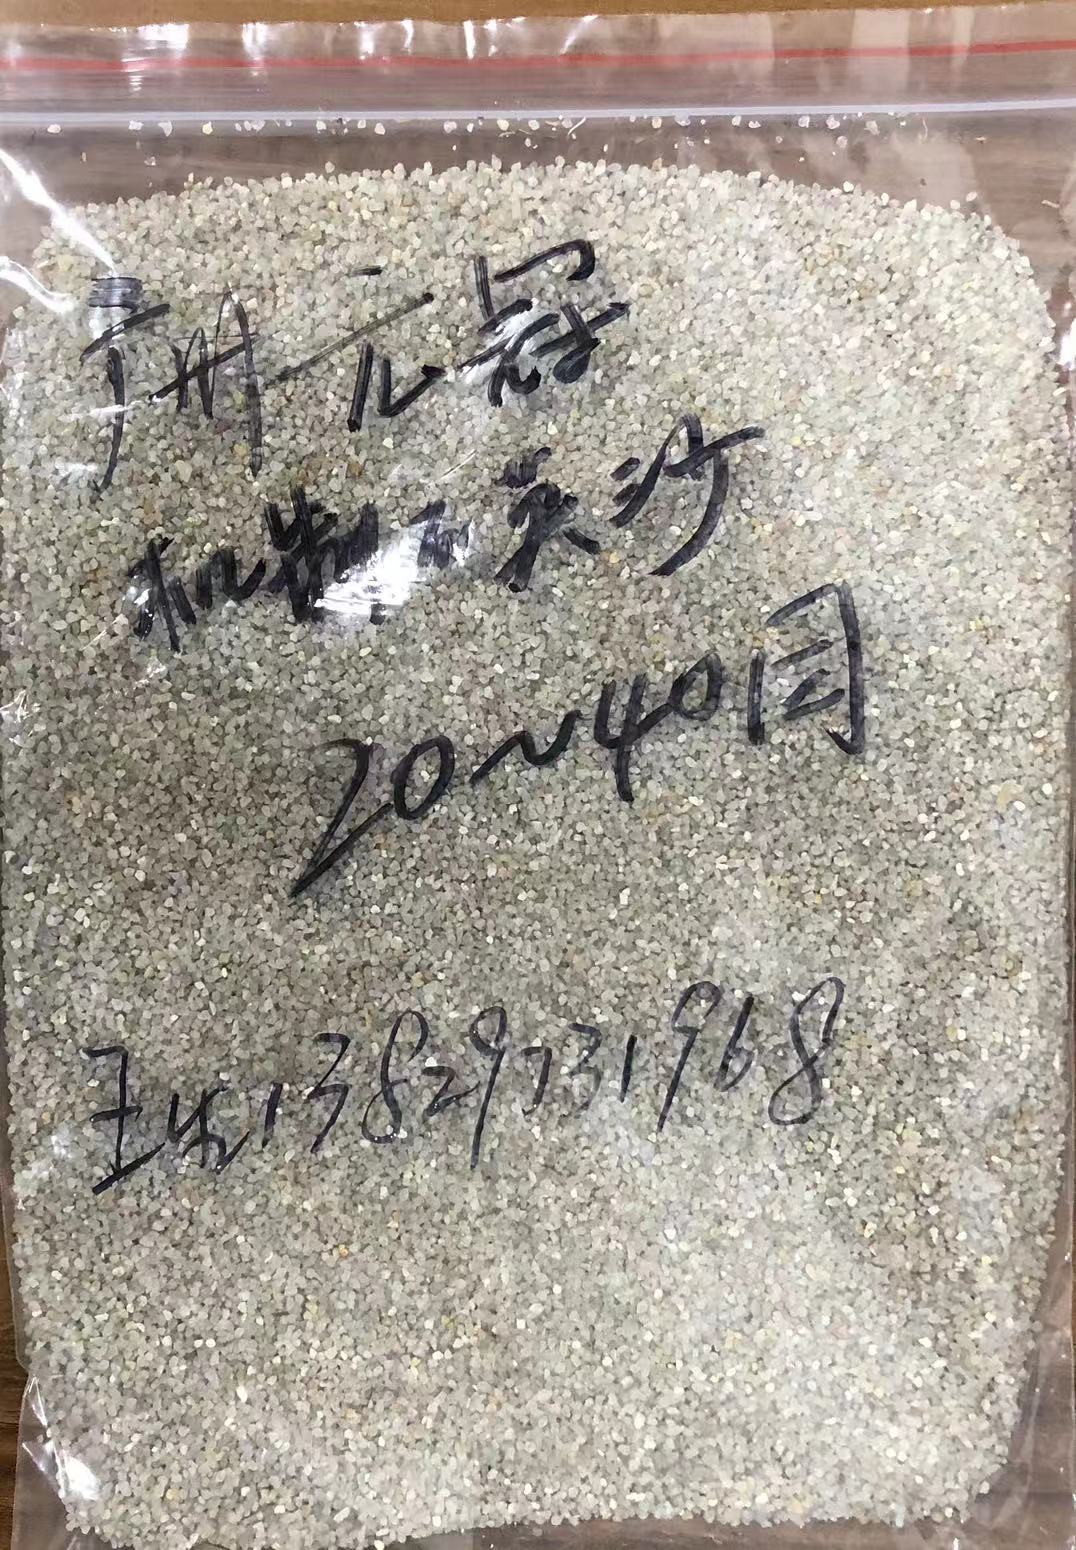 广州元冠
机制石英沙
20~40目
王生13829731968